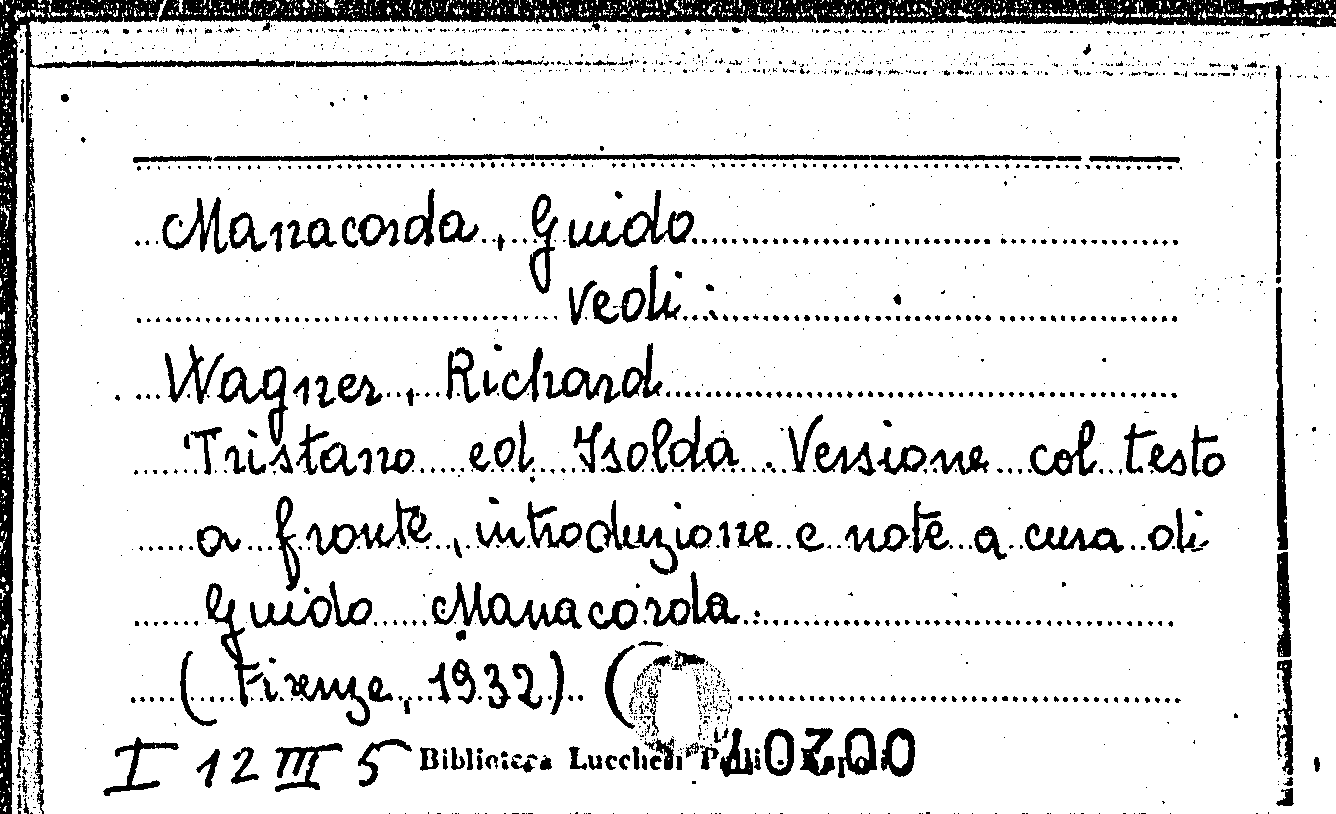 Manacorda, Guido
vedi:
Wagner, Richard
Tristano ed Isolda. Versione col testo
a fronte, introduzione e note a cura di
Guido Manacorda.
(Firenze, 1932) (
I 12 III 5 Biblioteca Lucchesi 10700